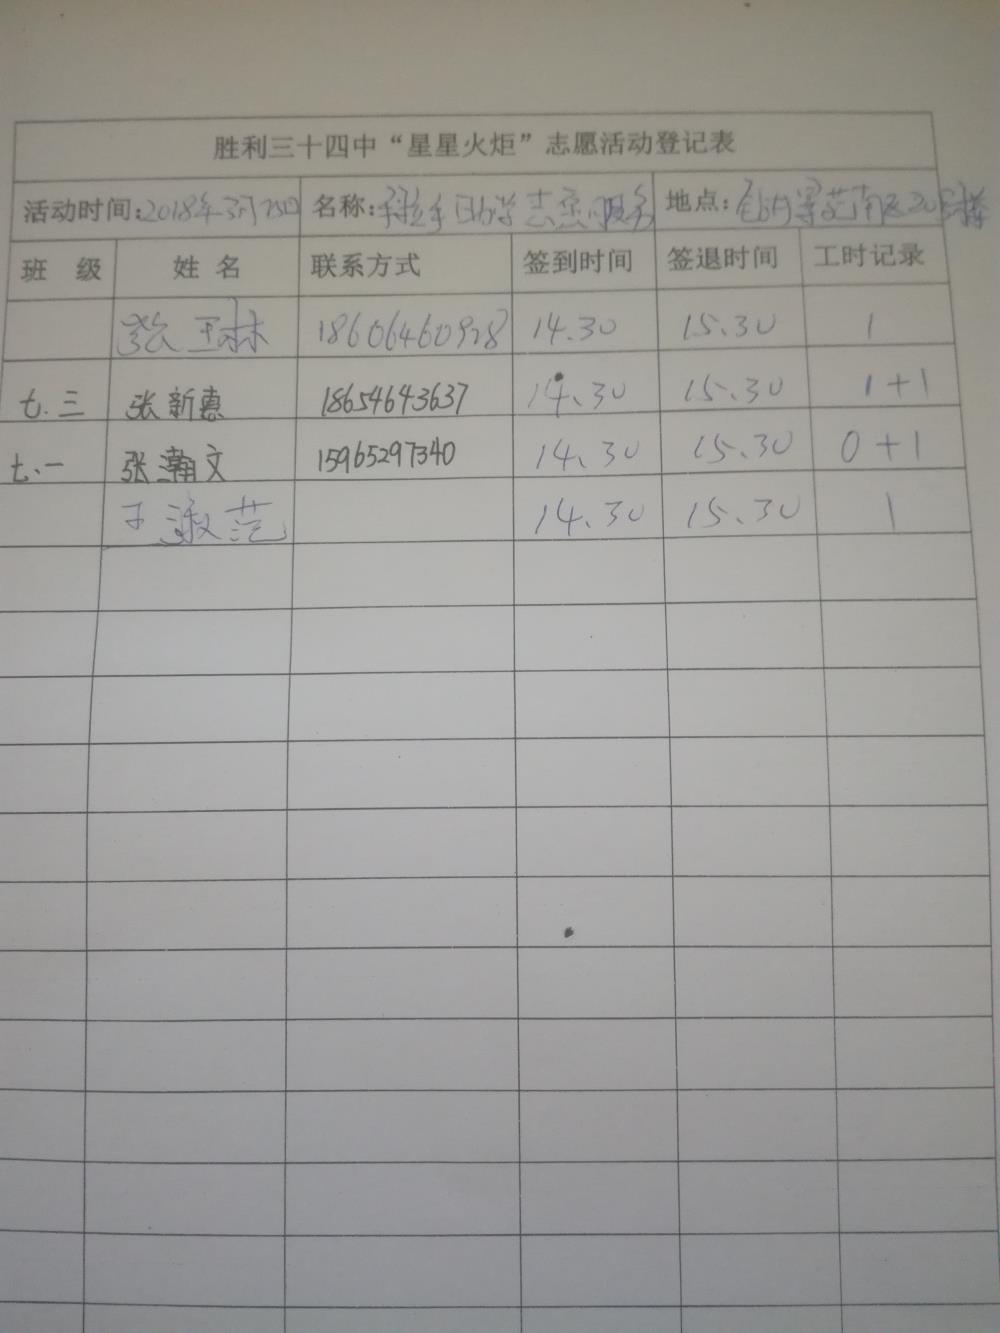 胜利三十四中“星星火炬”志愿活动登记表
活动时间:2018年3月25日 名称:手拉手助学志愿服务 地点:南区20号楼
班 级 姓 名 联系方式 签到时间 签退时间 工时记录
张玉林 18606460978 14.30 15.30 1
七.三 张新惠 18654643637 14.30 15.30 1+1
七.一 张瀚文 15965297340 14.30 15.30 0+1
王淑范 14.30 15.30 1